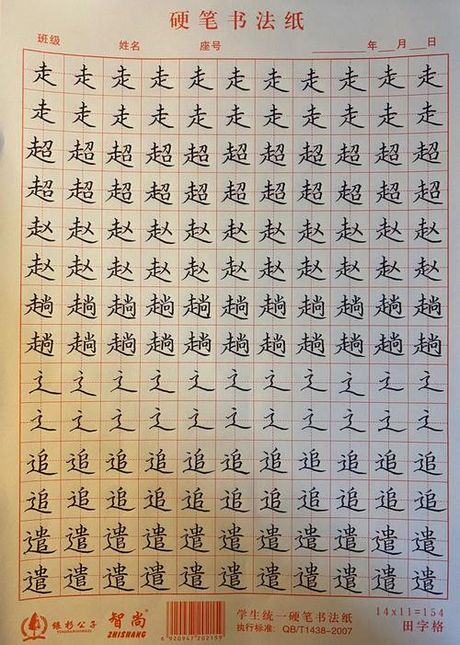 硬笔书法纸
班级 姓名 座号 年 月 日
走走走走走走走走走走走
走走走走走走走走走走走
超超超超超超超超超超超
超超超超超超超超超超超
赵赵赵赵赵赵赵赵赵赵赵
赵赵赵赵赵赵赵赵赵赵赵
趟趟趟趟趟趟趟趟趟趟趟
趟趟趟趟趟趟趟趟趟趟趟
辶辶辶辶辶辶辶辶辶辶辶
辶辶辶辶辶辶辶辶辶辶辶
追追追追追追追追追追追
追追追追追追追追追追追
遣遣遣遣遣遣遣遣遣遣遣
遣遣遣遣遣遣遣遣遣遣遣
银杉公子 智尚 ZHISHANG
6920947202159
学生统一硬笔书法纸
执行标准: QB/T1438-2007
14x11=154
田字格